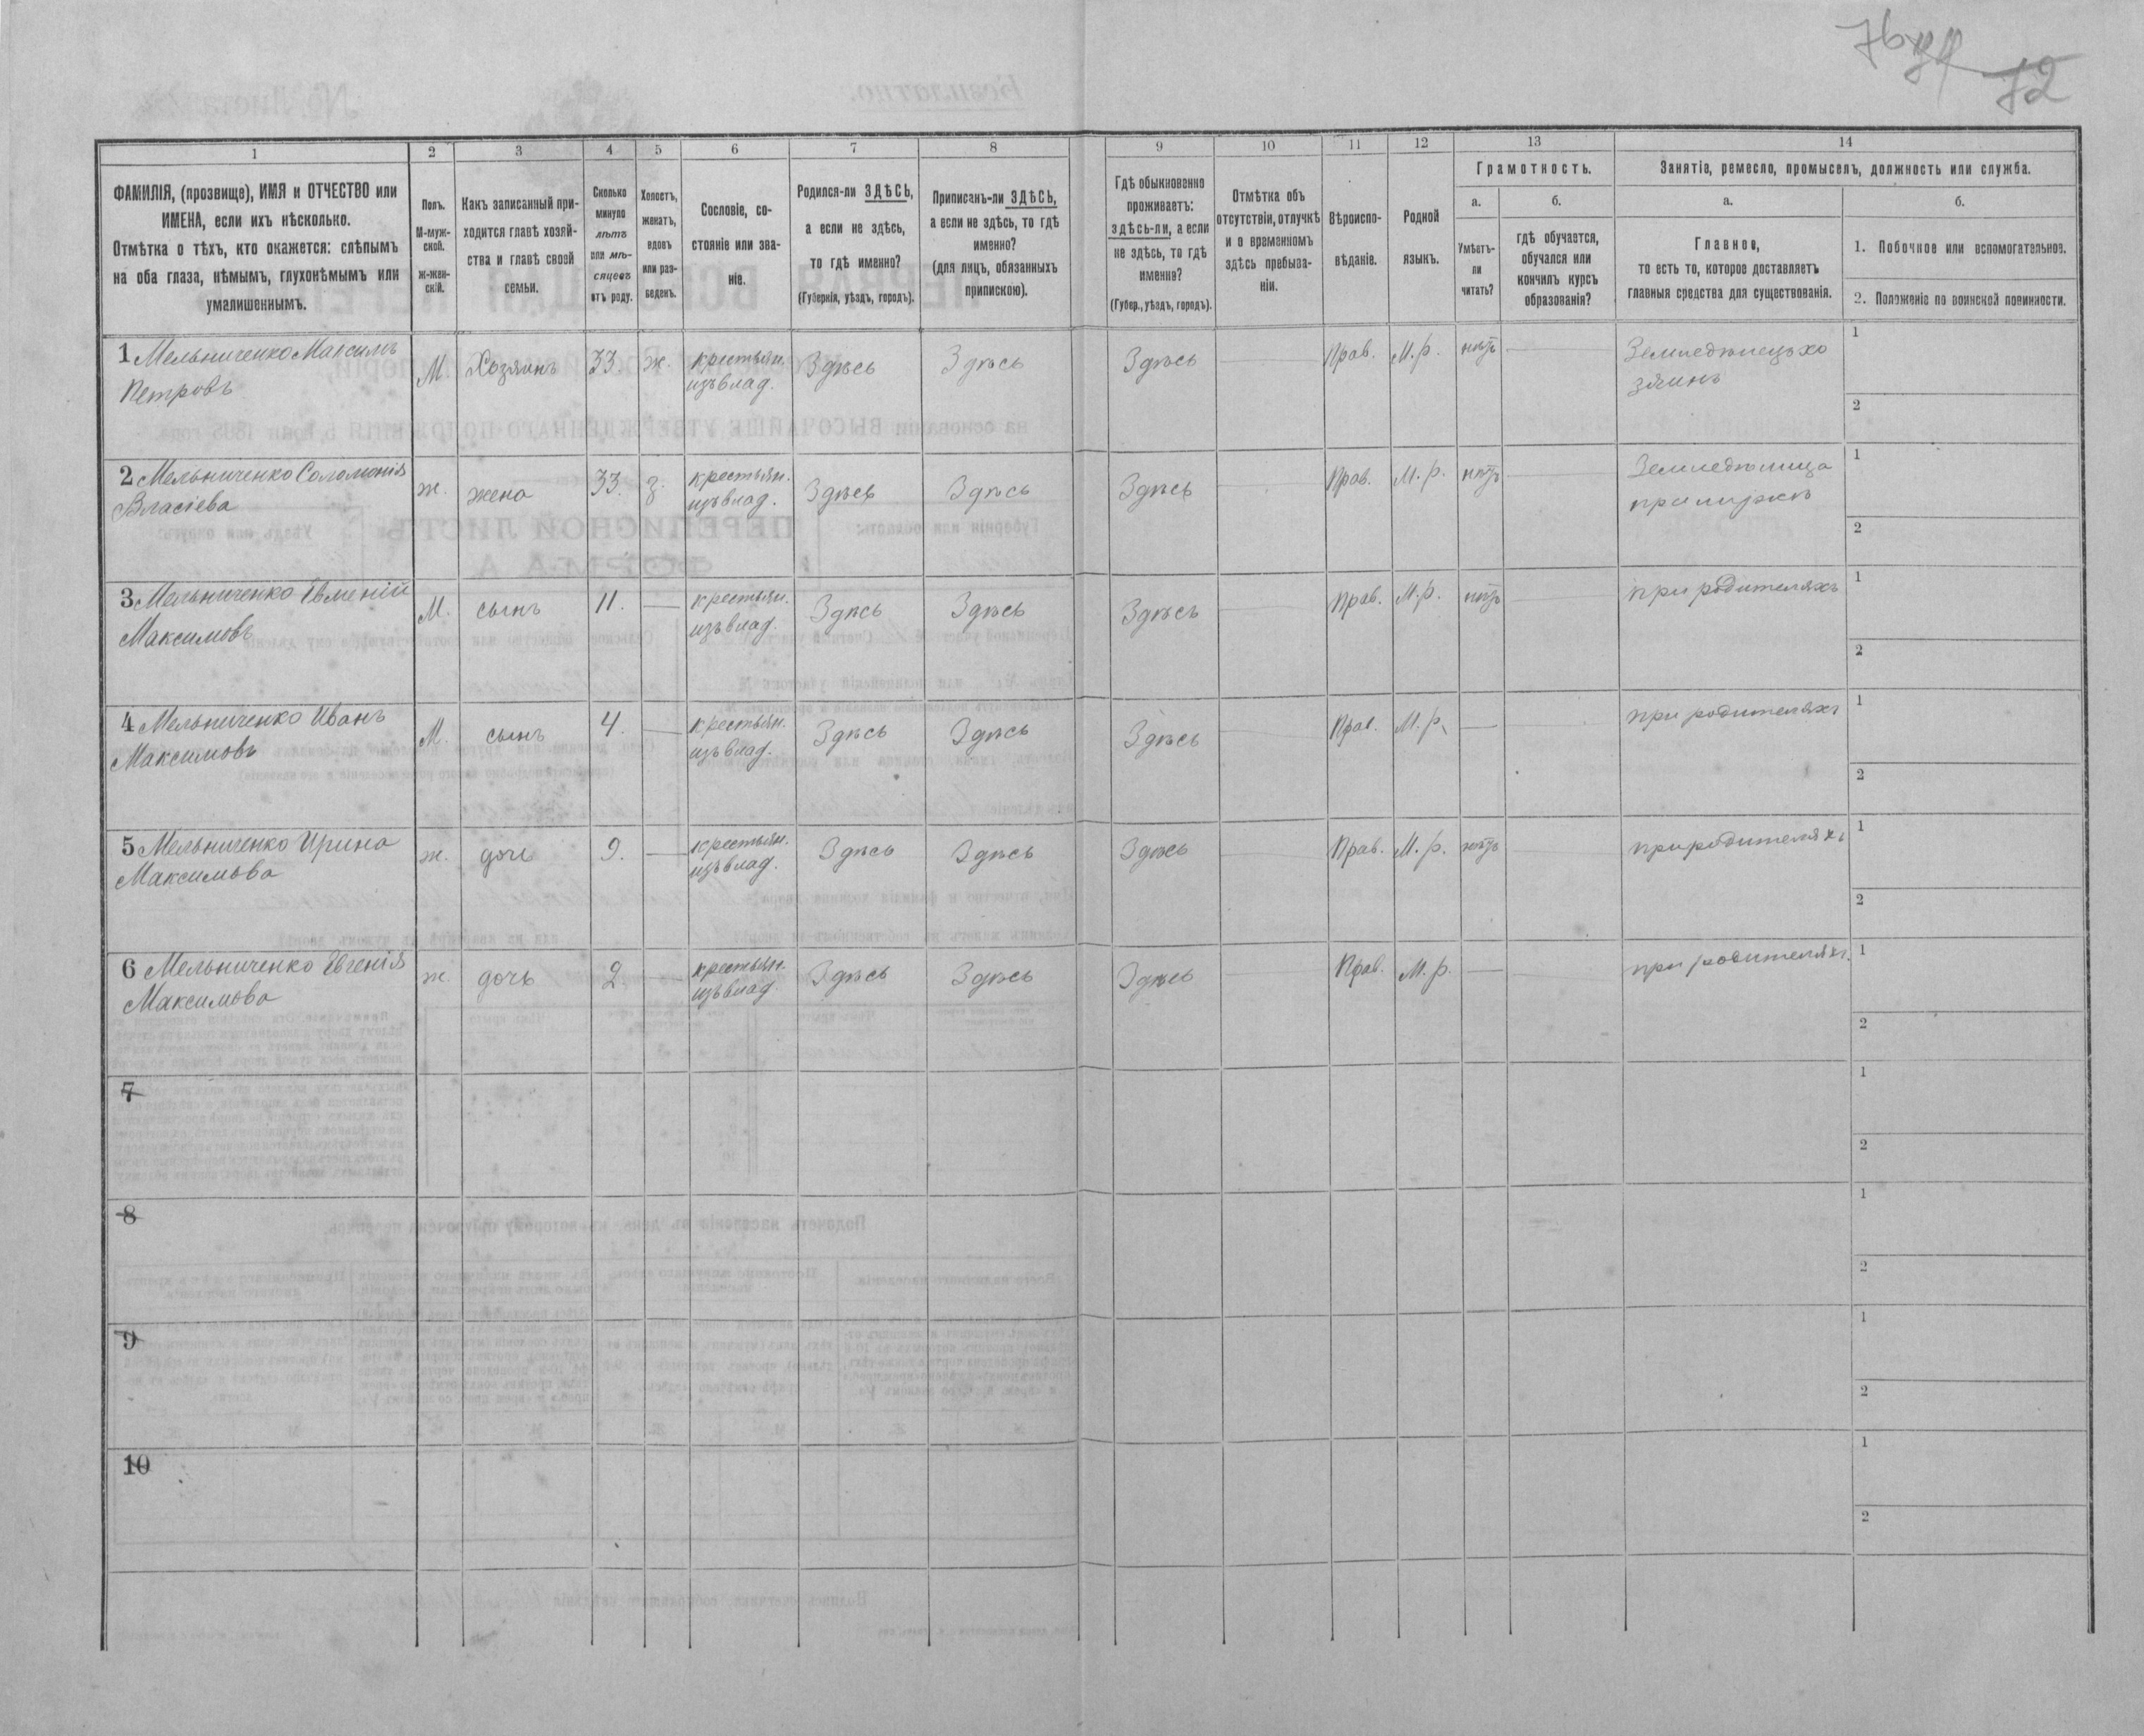 76 72
1 2 3 4 5 6 7 8 9 10 11 12 13 14
ФАМИЛІЯ, (прозвище), ИМЯ и ОТЧЕСТВО или
ИМЕНА, если ихъ нѣсколько.
Отмѣтка о тѣхъ, кто окажется: слѣпымъ
на оба глаза, нѣмымъ, глухонѣмымъ или
умалишеннымъ.
Полъ.
М-муж-
ской.
ж-жен-
скій.
Какъ записанный при-
ходится главѣ хозяй-
ства и главѣ своей
семьи.
Сколько
минуло
лѣтъ
или мѣ-
сяцевъ
отъ роду.
Холостъ,
женатъ,
вдовъ
или раз-
веденъ.
Сословіе, со-
стояніе или зва-
ніе.
Родился-ли ЗДѢСЬ,
а если не здѣсь,
то гдѣ именно?
(Губернія, уѣздъ, городъ).
Приписанъ-ли ЗДѢСЬ,
а если не здѣсь, то гдѣ
именно?
(для лицъ, обязанныхъ
припискою).
Гдѣ обыкновенно
проживаетъ:
здѣсь-ли, а если
не здѣсь, то гдѣ
именно?
(Губер., уѣздъ, городъ).
Отмѣтка объ
отсутствіи, отлучкѣ
и о временномъ
здѣсь пребыва-
ніи.
Вѣроиспо-
вѣданіе.
Родной
языкъ.
Грамотность.
а. б.
Умѣетъ-
ли
читать?
гдѣ обучается,
обучался или
кончилъ курсъ
образованія?
Занятіе, ремесло, промыселъ, должность или служба.
а. б.
Главное,
то есть то, которое доставляетъ
главныя средства для существованія.
1. Побочное или вспомогательное.
2. Положеніе по воинской повинности.
1 Мельниченко Максимъ М Хозяинъ 33. ж. крестьян. Здѣсь Здѣсь Здѣсь Прав. М.р. нѣтъ Земледѣлецъ хо 1
Петровъ изъ влад. зяинъ 2
2 Мельниченко Соломонія ж. жена 33. з. крестьян. Здѣсь Здѣсь Здѣсь Прав. М.р. нѣтъ Земледѣлица 1
Власіева изъ влад. при мужѣ 2
3 Мельниченко Евменій М. сынъ 11. крестьян. Здѣсь Здѣсь Здѣсь Прав. М.р. нѣтъ при родителяхъ 1
Максимовъ изъ влад. 2
4 Мельниченко Иванъ М. сынъ 4. крестьян. Здѣсь Здѣсь Здѣсь Прав. М.р. при родителяхъ 1
Максимовъ изъ влад. 2
5 Мельниченко Ирина ж. дочь 9. крестьян. Здѣсь Здѣсь Здѣсь Прав. М.р. нѣтъ при родителяхъ 1
Максимова изъ влад. 2
6 Мельниченко Евгенія ж. дочь 2. крестьян. Здѣсь Здѣсь Здѣсь Прав. М.р. при родителяхъ 1
Максимова изъ влад. 2
7 1
2
8 1
2
9 1
2
10 1
2